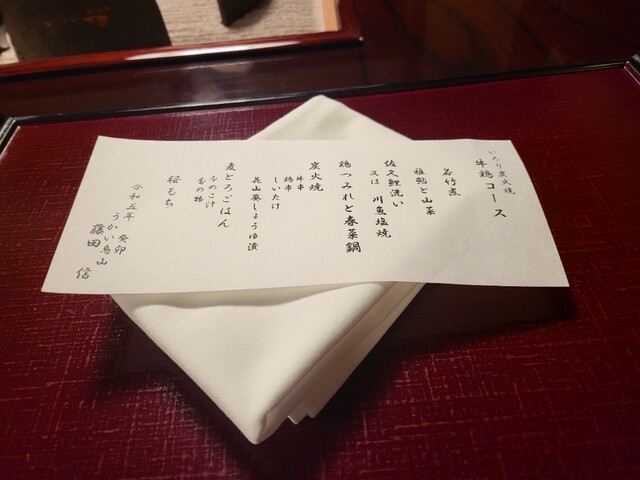 いろり炭火焼
牛鶏コース
若竹煮
稚鮎と山菜
佐久鯉洗い
又は 川魚塩焼
鶏つみれと春菜鍋
炭火焼
牛串
鶏串
しいたけ
花山葵しょうゆ漬
麦とろごはん
なめこ汁
香の物
桜もち
令和五年 癸卯
うかい鳥山
藤田 信